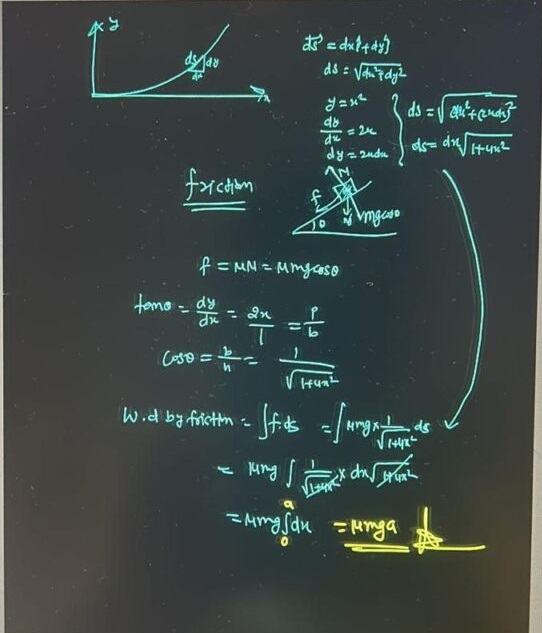 y
ds dy
dx
x
d⃗s = dxî + dyĵ
ds = √(dx² + dy²)
y = x²
dy/dx = 2x
dy = 2xdx
ds = √(dx² + (2xdx)²)
ds = dx√(1+4x²)
friction
N
f
θ
mgcosθ
f = μN = μmgcosθ
tanθ = dy/dx = 2x/1 = p/b
cosθ = b/h = 1/√(1+4x²)
W.d by friction = ∫f ds = ∫μmg × 1/√(1+4x²) ds
= μmg ∫ 1/√(1+4x²) × dx√(1+4x²)
= μmg ∫₀ᵃ dx = μmga